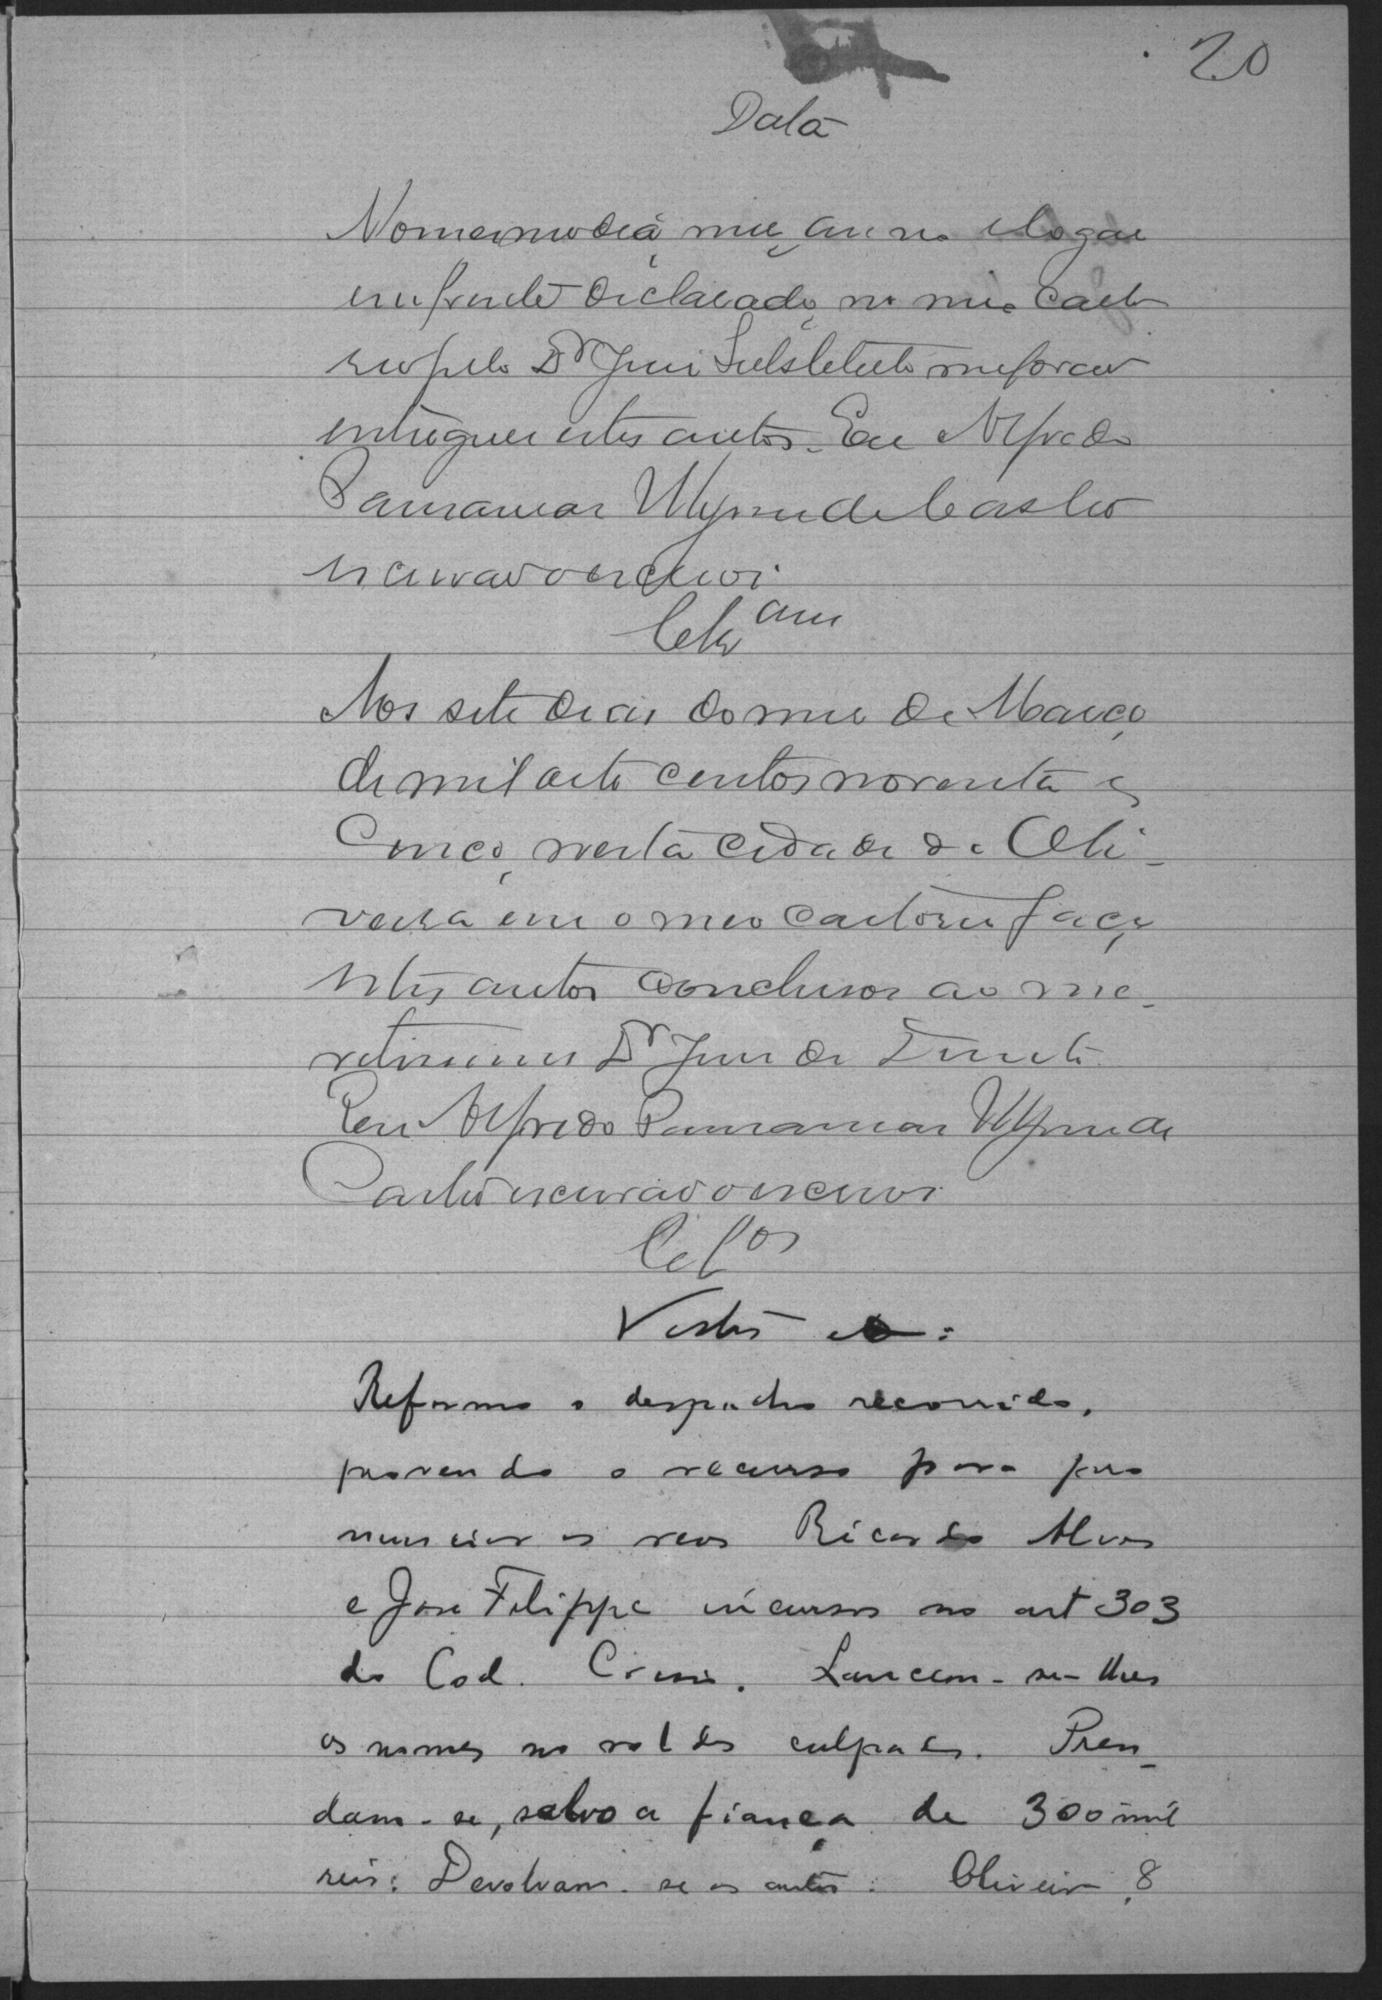 20
Data
No mesmo dia, mez, anno e logar
em frente declarado, no meu carto
rio pelo Dr Juiz Substituto me foram
entregues estes autos. Eu Alfredo
Paranauar de Castro
escrivão o escrevi
Aos sete dias do mez de Março
de mil oito centos noventa e
Cinco, nesta cidade de Oli-
veira em o meo cartorio faço
estes autos conclusos ao me-
retissimo Dr Juiz de Direito.
Eu Alfredo de
Castro escrivão o escrevi
Clsos
Vistos etc:
Reformo o despacho recorrido,
provendo o recurso para pro
nunciar os reos Ricardo Alves
e José Filippe incursos no art 303
do Cod. Crim. Lancem-se-lhes
os nomes no rol dos culpados. Pren-
dam-se, salvo a fiança de 300 mil
reis: Devolvam-se os autos: Oliveira, 8